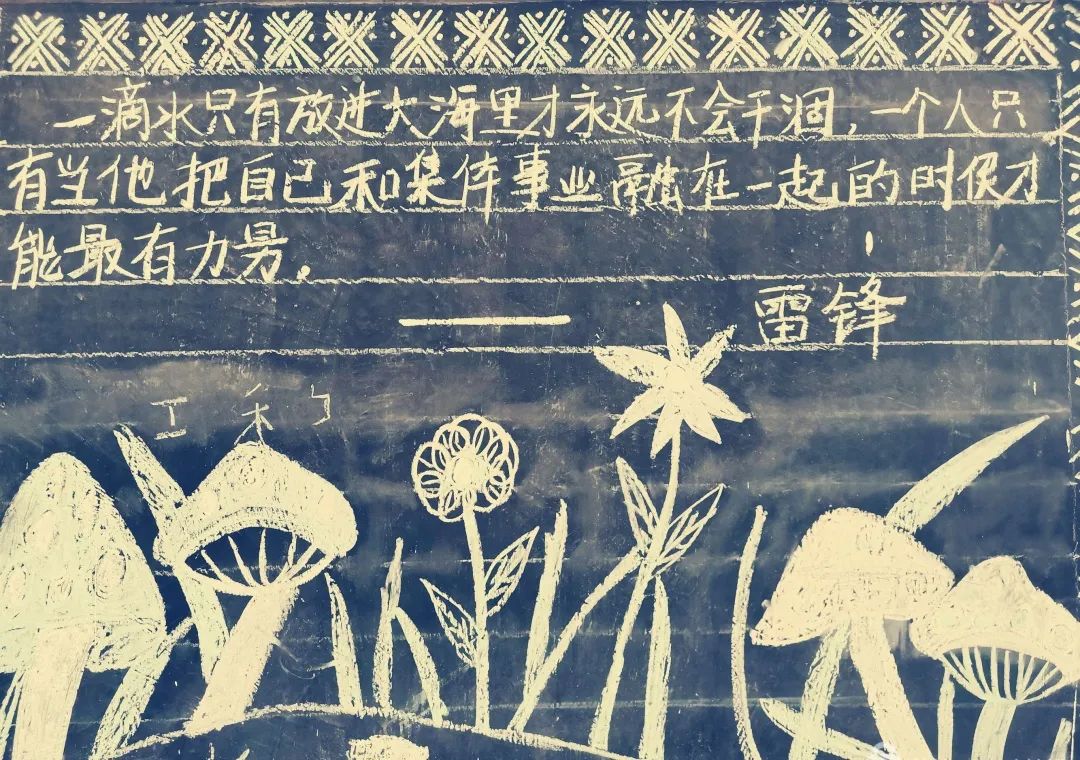 一滴水只有放进大海里才永远不会干涸，一个人只
有当他把自己和集体事业融在一起的时候才
能最有力量。
—— 雷锋